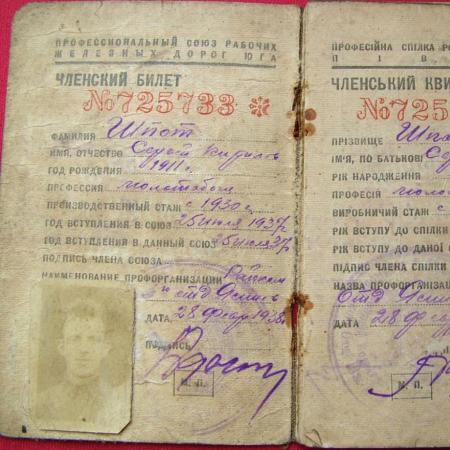 ПРОФЕССИОНАЛЬНЫЙ СОЮЗ РАБОЧИХ
ЖЕЛЕЗНЫХ ДОРОГ ЮГА
ЧЛЕНСКИЙ БИЛЕТ
№725733 ✻
ФАМИЛИЯ Шпот
ИМЯ, ОТЧЕСТВО Сергей
ГОД РОЖДЕНИЯ 1911 г.
ПРОФЕССИЯ молотобоец
ПРОИЗВОДСТВЕННЫЙ СТАЖ с 1930 г.
ГОД ВСТУПЛЕНИЯ В СОЮЗ 25 июля 1937г
ГОД ВСТУПЛЕНИЯ В ДАННЫЙ СОЮЗ 25 июля 37г
ПОДПИСЬ ЧЛЕНА СОЮЗА
НАИМЕНОВАНИЕ ПРОФОРГАНИЗАЦИИ
ДАТА 28 февр 1938г
ПОДПИСЬ
М. П.
ПРОФЕСІЙНА СПІЛКА РО
ПІВ
ЧЛЕНСЬКИЙ КВИ
№725
ПРІЗВИЩЕ Шпо
ІМ'Я, ПО БАТЬКОВІ Се
РІК НАРОДЖЕННЯ
ПРОФЕСІЯ моло
ВИРОБНИЧИЙ СТАЖ с
РІК ВСТУПУ ДО СПІЛКИ
РІК ВСТУПУ ДО ДАНОЇ С
ПІДПИС ЧЛЕНА СПІЛКИ
НАЗВА ПРОФОРГАНІЗ
ДАТА 28 февр
М. П.